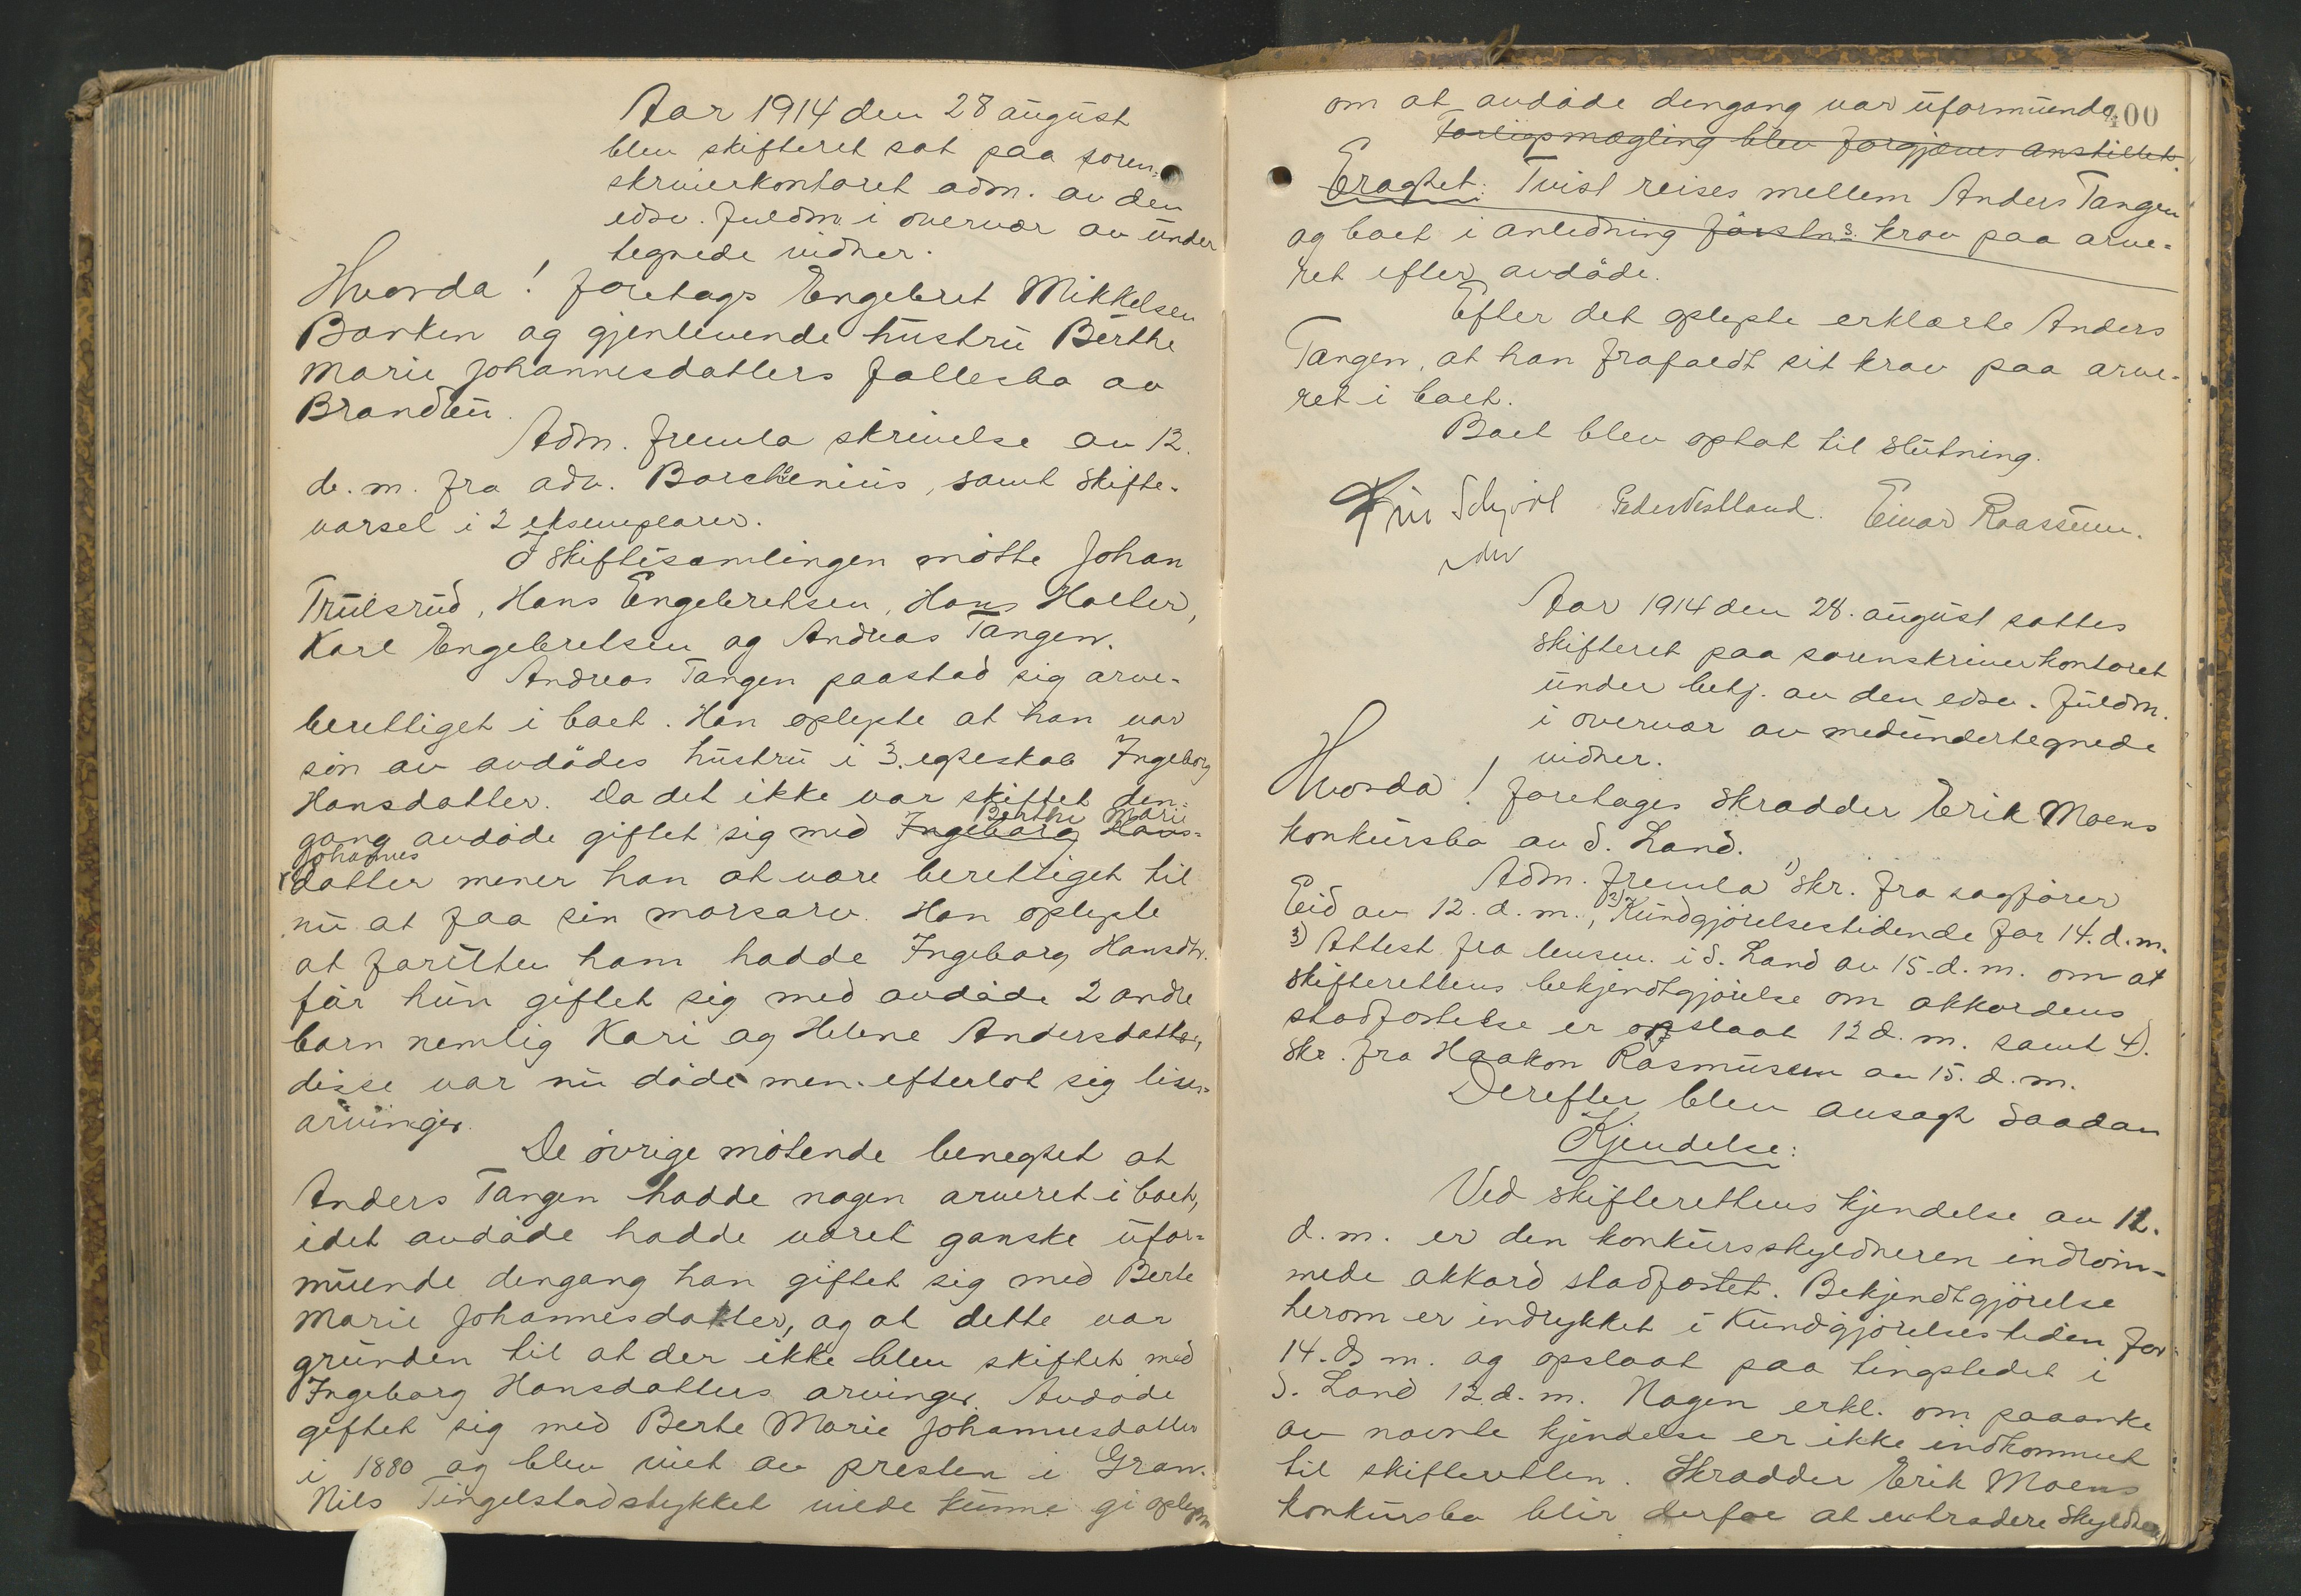 Aar 1914 den 28 august
blev skifteret sat paa soren-
skriverkontoret adm. av den
edsv. fuldm. i overvær av under
tegnede vidner.
Hvorda! foretags Engebret Mikkelsen
Borken og gjenlevende hustru Berthe
Marie Johannesdatters fællesbo av
Brandbu.
Adm. fremla skrivelse av 12.
d. m. fra adv. Borchenius, samt skifte-
varsel i 2 eksemplarer.
I skiftesamlingen møtte Johan
Trulsrud, Hans Engebretsen, Hans Halter,
Karl Engebretsen og Andreas Tangen.
Andreas Tangen paastod sig arve-
berettiget i boet. Han oplyste at han var
søn av avdødes hustru i 3. egteskab Ingeborg
Hansdatter. Da det ikke var skiftet den-
gang avdøde giftet sig med Ingeborg Hans- Berthe Marie
Johannes
datter mener han at være berettiget til
nu at faa sin morsarv. Han oplyste
at foruten ham hadde Ingeborg Hansdtr.
før hun giftet sig med avdøde 2 andre
barn nemlig Kari og Helene Andersdatter,
disse var nu døde men efterlot sig livs-
arvinger.
De øvrige møtende benegtet at
Anders Tangen hadde nogen arveret i boet,
idet avdøde hadde været ganske ufor-
muende dengang han giftet sig med Berte
Marie Johannesdatter, og at dette var
grunden til at der ikke blev skiftet med
Ingeborg Hansdatters arvinger. Avdøde
giftet sig med Berte Marie Johannesdatter
i 1880 og blev viet av presten i Gran.
Nils Tingelstadstykket vilde kunne gi oplysn
400
om at avdøde dengang var uformuende
Forligsmægling blev forgjæves anstillet.
Eragtet: Tvist reises mellem Anders Tangen
og boet i anledning førstns. krav paa arve-
ret efter avdøde.
Efter det oplyste erklærte Anders
Tangen, at han frafaldt sit krav paa arve-
ret i boet.
Boet blev optat til slutning.
Peder Vestland. Einar Raassum.
Aar 1914 den 28. august sattes
skifteret paa sorenskriverkontoret
under betj. av den edsv. fuldm.
i overvær av medundertegnede
vidner.
Hvorda! foretages skrædder Erik Moens
konkursbo av S. Land.
Adm. fremla 1) skr. fra sagfører
Eid av 12. d. m., 2) Kundgjørelsestidende for 14. d. m.
3) Attest fra lensm. i S. Land av 15. d. m. om at
skifterettens bekjendtgjørelse om akkordens
stadfæstelse er opslaat 12 d. m. samt 4).
Skr. fra Haakon Rasmussen av 15. d. m.
Derefter blev avsagt saadan
Kjendelse:
Ved skifterettens kjendelse av 12.
d. m. er den konkursskyldneren indrøm-
mede akkord stadfæstet. Bekjendtgjørelse
herom er indrykket i Kundgjørelsestiden for
14. d. m. og opslaat paa tingstedet i
S. Land 12. d. m. Nogen erkl. om paaanke
av nævnte kjendelse er ikke indkommet
til skifteretten. Skrædder Erik Moens
konkursbo blir derfor at extradere skyldneren